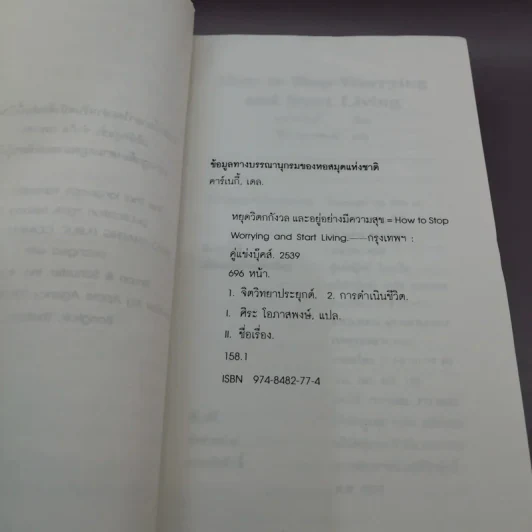 ข้อมูลทางบรรณานุกรมของหอสมุดแห่งชาติ
คาร์เนกี้, เดล.
หยุดวิตกกังวล และอยู่อย่างมีความสุข = How to Stop
Worrying and Start Living.——กรุงเทพฯ :
คู่แข่งบุ๊คส์. 2539
696 หน้า.
1. จิตวิทยาประยุกต์. 2. การดำเนินชีวิต.
I. ศิระ โอภาสพงษ์, แปล.
II. ชื่อเรื่อง.
158.1
ISBN 974-8482-77-4